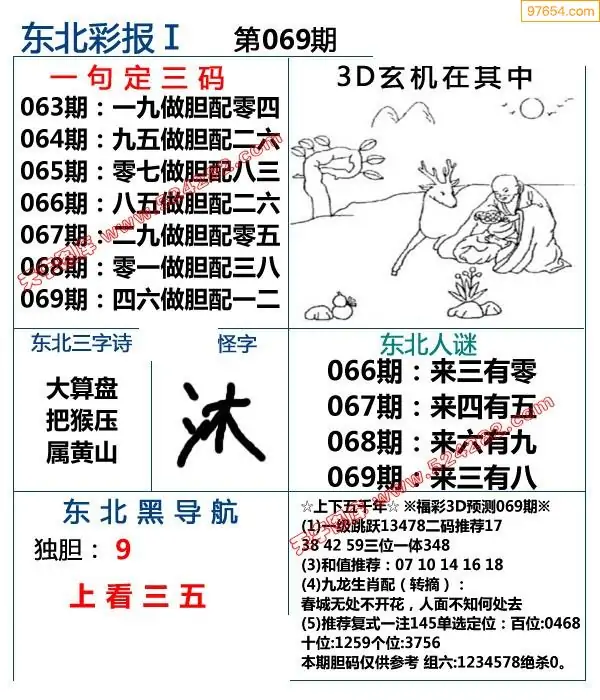 97654.com
东北彩报 I 第069期
一句定三码
063期：一九做胆配零四
064期：九五做胆配二六
065期：零七做胆配八三
066期：八五做胆配二六
067期：二九做胆配零五
068期：零一做胆配三八
069期：四六做胆配一二
3D玄机在其中
东北三字诗
大算盘
把猴压
属黄山
怪字
东北人谜
066期：来三有零
067期：来四有五
068期：来六有九
069期：来三有八
东北黑导航
独胆：9
上看三五
☆上下五千年☆ ※福彩3D预测069期※
(1)一级跳跃13478二码推荐17
38 42 59三位一体348
(3)和值推荐：07 10 14 16 18
(4)九龙生肖配（转摘）：
春城无处不开花，人面不知何处去
(5)推荐复式一注145单选定位：百位:0468
十位:1259个位:3756
本期胆码仅供参考 组六:1234578绝杀0。